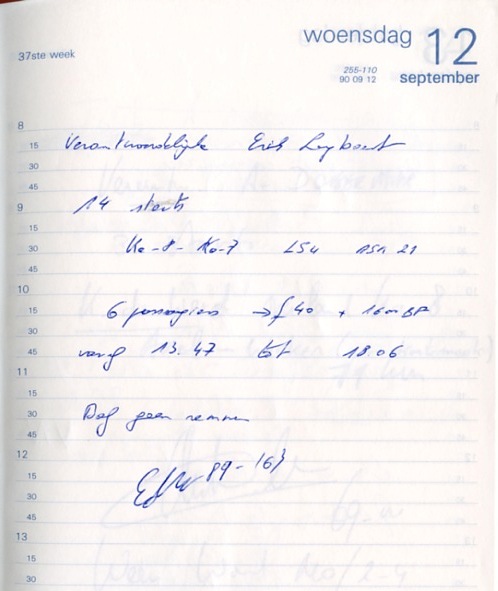 woensdag 12
37ste week
255-110
90 09 12
september
8
15 Verantwoordelijke Erik
30
45
9 14 starts
15
30 Ka-8 - Ka-7 LS4 ASK 21
45
10
15 6 passagiers → £ 40 +
30
45 vanaf 13.47 tot 18.06
11
15
30 Daf geen remmen
45
12
15 89-163
30
45
13
15
30